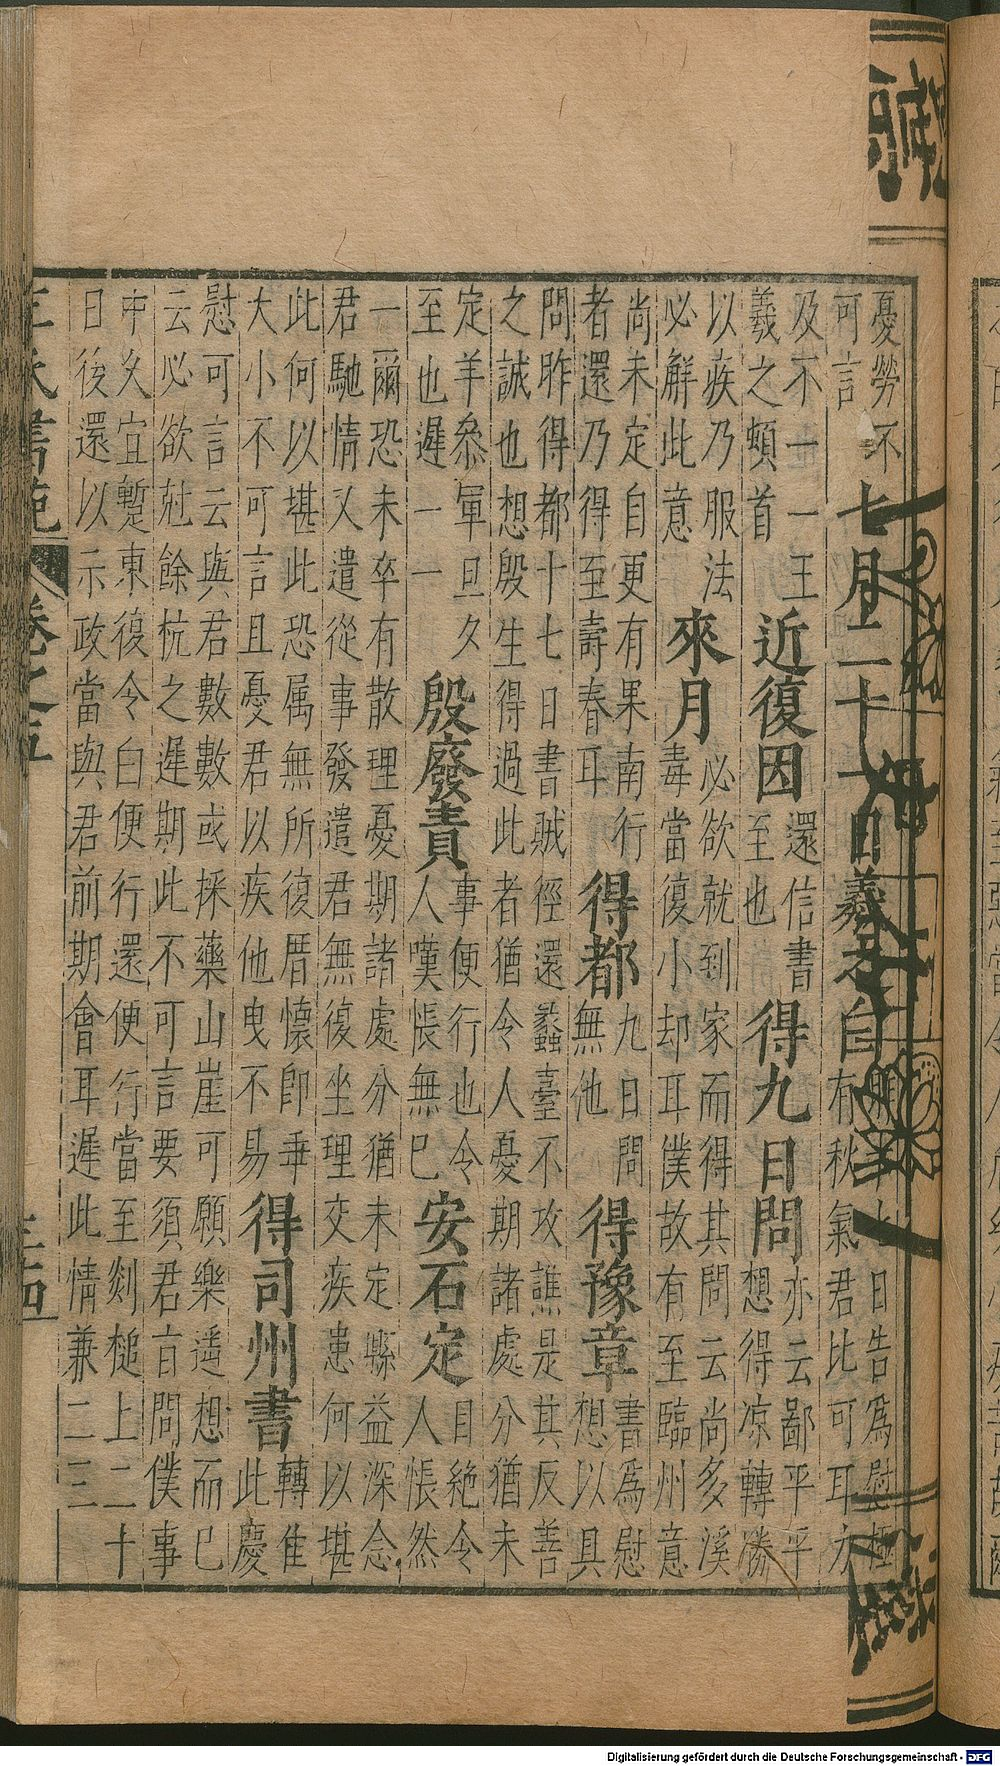 憂勞不
可言
七月二十一日羲之自
日告為慰極
有秋氣君比可耳力
及不一一王
羲之頓首
近復因
還信書
至也
得九日問
亦云鄙平平
想得凉轉勝
以疾乃服法
必解此意
來月
必欲就到家而得其問云尚多溪
毒當復小却耳僕故有至臨州意
尚未定自更有果南行
者還乃得至壽春耳
得都
九日問
無他
得豫章
書為慰
想以具
問昨得都十七日書賊徑還蠡臺不攻譙是其反善
之誠也想殷生得過此者猶令人憂期諸處分猶未
定羊叅軍旦夕
至也遲一一
殷廢責
事便行也令
人嘆悵無已
安石定
目絶令
人悵然
一爾恐未卒有散理憂期諸處分猶未定縣益深念
君馳情又遣從事發遣君無復坐理交疾患何以堪
此何以堪此恐属無所復厝懷即垂
大小不可言且憂君以疾他曳不易
得司州書
轉佳
此慶
慰可言云與君數數或採藥山崖可願樂遥想而已
云必欲尅餘杭之遲期此不可言要須君旨問僕事
中久宜蹔東復令白便行還便行當至剡槌上二十
日後還以示政當與君前期會耳遲此情兼二三
王氏書苑
卷之五
Digitalisierung gefördert durch die Deutsche Forschungsgemeinschaft - DFG